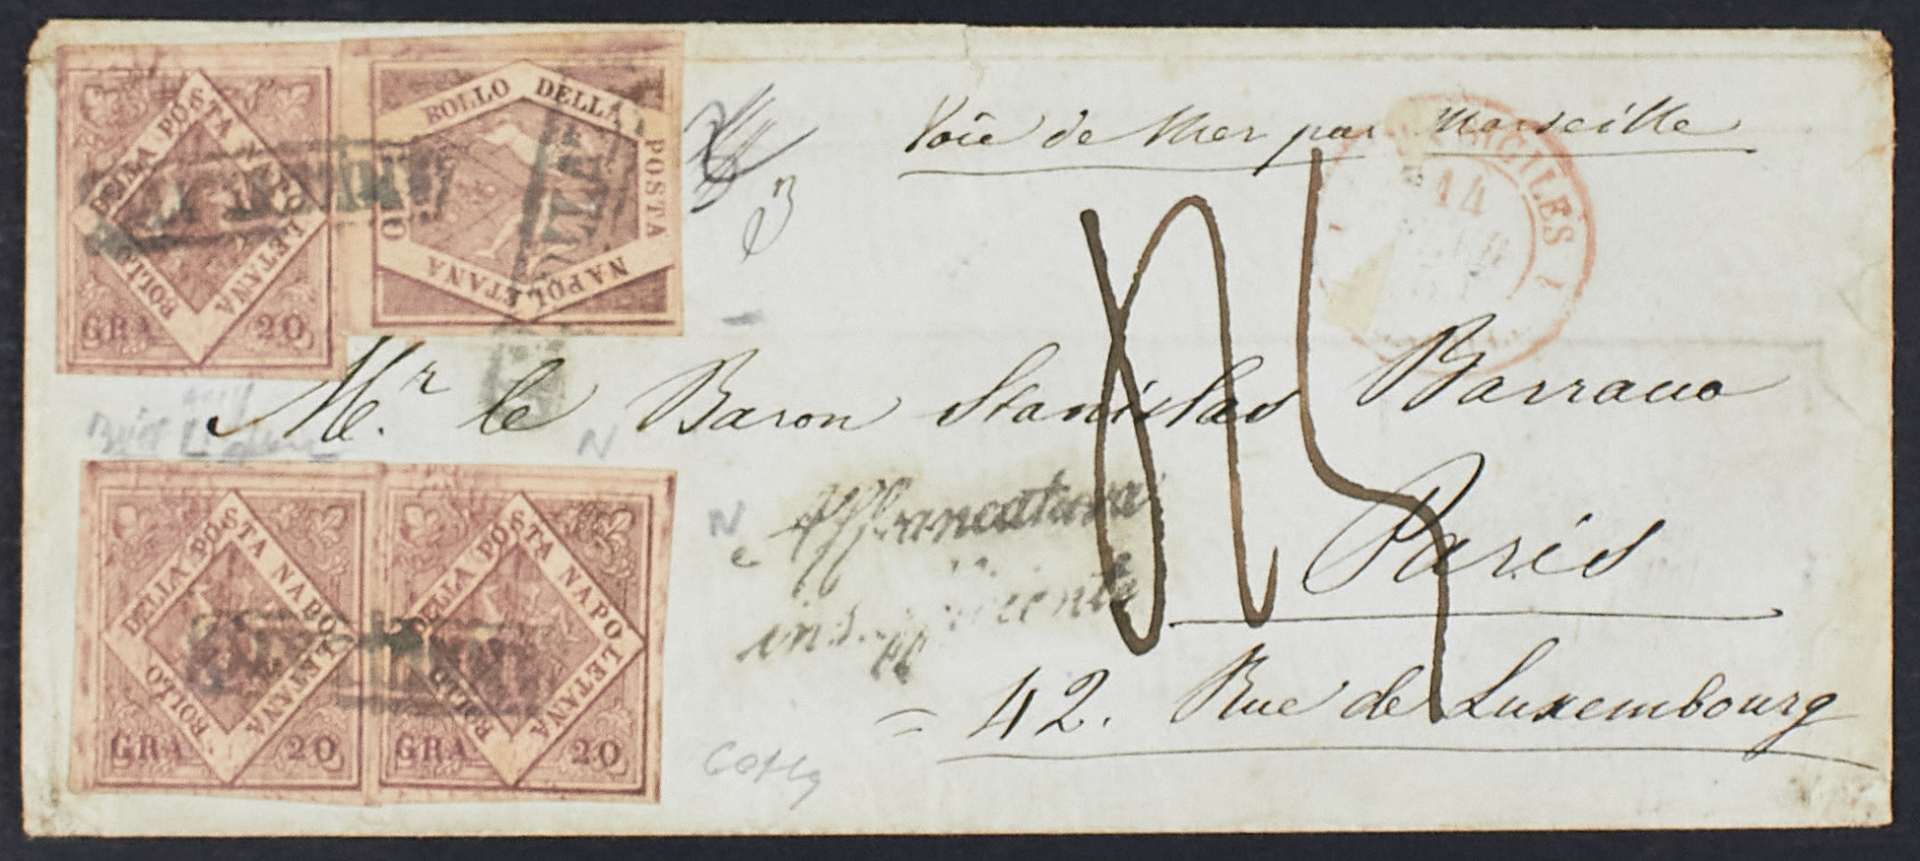 DELLA POSTA NAPOLETANA
BOLLO
GRA 20
BOLLO DELLA POSTA NAPOLETANA
ANNULLATO
Voie de Mer par Marseille
14
Mr. le Baron Stanislas Barraco
N
N
Affrancatura
insufficiente
Paris
= 42. Rue de Luxembourg
DELLA POSTA NAPOLETANA
BOLLO
GRA 20
DELLA POSTA NAPOLETANA
BOLLO
GRA 20